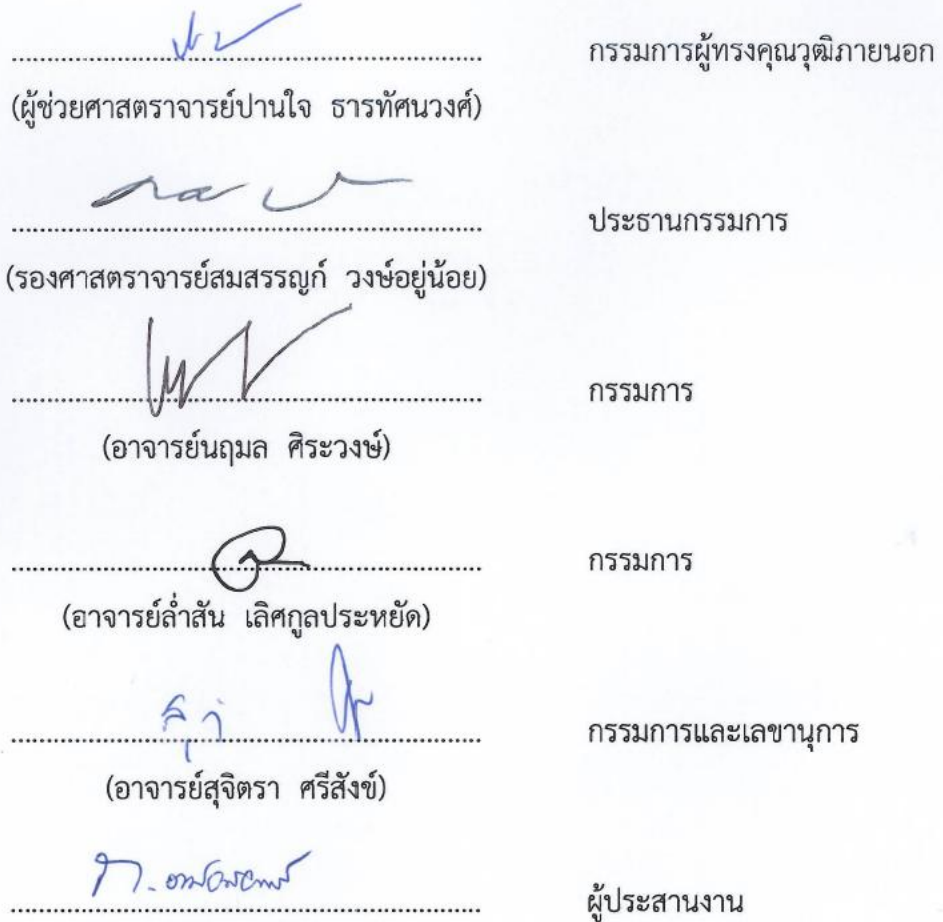 กรรมการผู้ทรงคุณวุฒิภายนอก
(ผู้ช่วยศาสตราจารย์ปานใจ ธารทัศนวงศ์)
ประธานกรรมการ
(รองศาสตราจารย์สมสรรญก์ วงษ์อยู่น้อย)
กรรมการ
(อาจารย์นฤมล ศิระวงษ์)
กรรมการ
(อาจารย์ล่ำสัน เลิศกูลประหยัด)
กรรมการและเลขานุการ
(อาจารย์สุจิตรา ศรีสังข์)
ผู้ประสานงาน